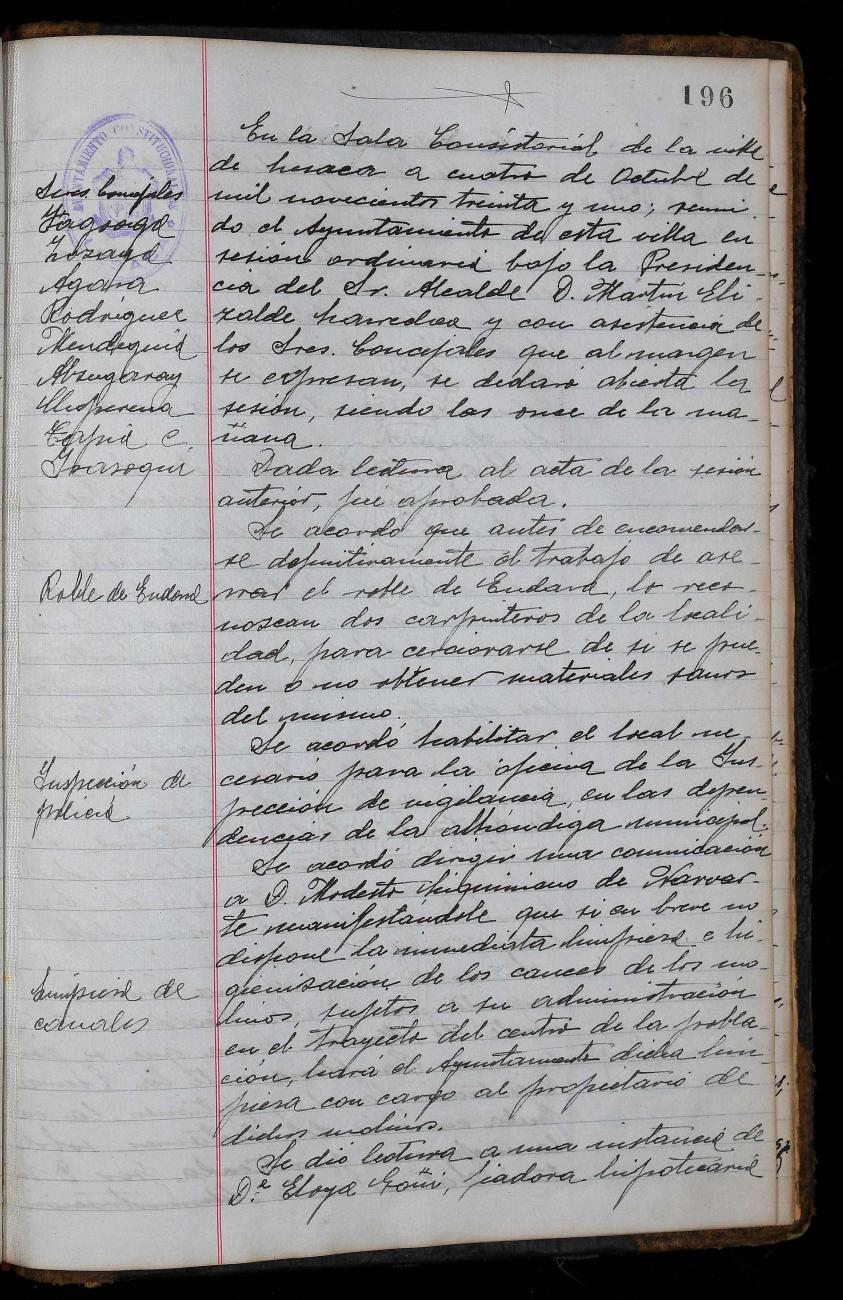 196
AYUNTAMIENTO CONSTITUCIONAL
Sres. Concejales
Zozaya
Agara
Rodriguez
Mendeguia
Alzugaray
Tapia C.
Irasoqui
En la Sala Consistorial de la villa
de Lesaca a cuatro de Octubre de
mil novecientos treinta y uno; reuni-
do el Ayuntamiento de esta villa en
sesión ordinaria bajo la Presiden-
cia del Sr. Alcalde D. Martín Eli-
zalde y con asistencia de
los Sres. Concejales que al margen
se expresan, se declaró abierta la
sesión, siendo las once de la ma-
ñana.
Dada lectura al acta de la sesión
anterior, fué aprobada.
Roble de Endara
Se acordó que antes de encomendar-
se definitivamente el trabajo de ase-
rrar el roble de Endara, lo reco-
nozcan dos carpinteros de la locali-
dad, para cerciorarse de si se pue-
den o no obtener materiales sanos
del mismo.
Inspección de
policia
Se acordó habilitar el local ne-
cesario para la oficina de la Ins-
pección de vigilancia, en las depen-
dencias de la alhóndiga municipal.
Limpieza de
canales
Se acordó dirigir una comunicación
a D. Modesto de Narvar-
te manifestándole que si en breve no
dispone la inmediata limpieza e hi-
gienización de los cauces de los mo-
linos, sujetos a su administración
en el trayecto del centro de la pobla-
ción, hará el Ayuntamiento dicha lim-
pieza con cargo al propietario de
dichos molinos.
Se dió lectura a una instancia de
D.ª Eloya Goñi, fiadora hipotecaria